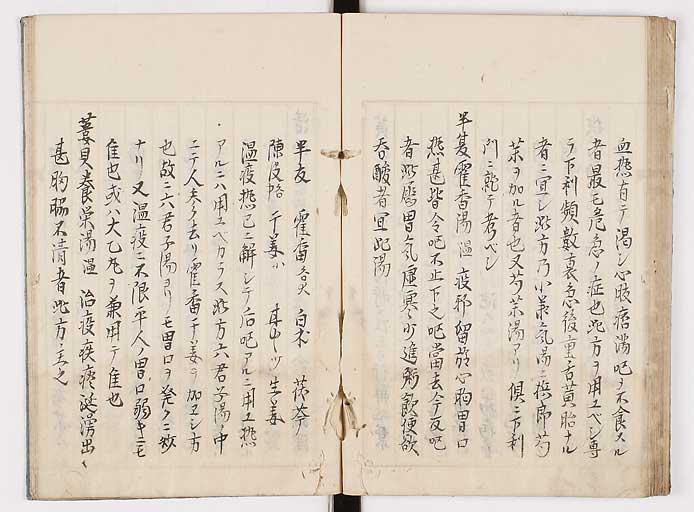 血熱有テ渇シ心腹痞満吧ヲ不食スル
者最モ危急ノ症也此方ヲ用エベシ専
ラ下利頻數裏急後重舌黄胎ナル
者ニ宜シ此方乃小義氣湯ニ梹榔芍
薬ヲ加ル者也又芍薬湯アリ俱ニ下利
門ニ記ス考ベシ
半夏霍香湯 温疫邪留於心胸胃口
熱甚皆令吧不止下之吧當去今反吧
者此應胃氣虚寒少進粥飲便欲
吞酸者宜此湯
半夏 霍香各大 白朮 茯苓
陳皮 干姜小 甘艸少 生姜
温疫熱已ニ解シテ后吧アルニ用エ熱
アルニハ用エベカラス此方六君子湯ノ中
ニテ人参ヲ去リ霍香干姜ヲ加エシ方
也故ニ六君子湯ヨリモ胃口ヲ発クニ妙
ナリ又温疫ニ不限平人ノ胃口弱キニモ
佳也或ハ大乙丸ヲ兼用テ佳也
蔞貝養栄湯 温 治疫疾痰涎湧出
甚胸膈不清者此方主之